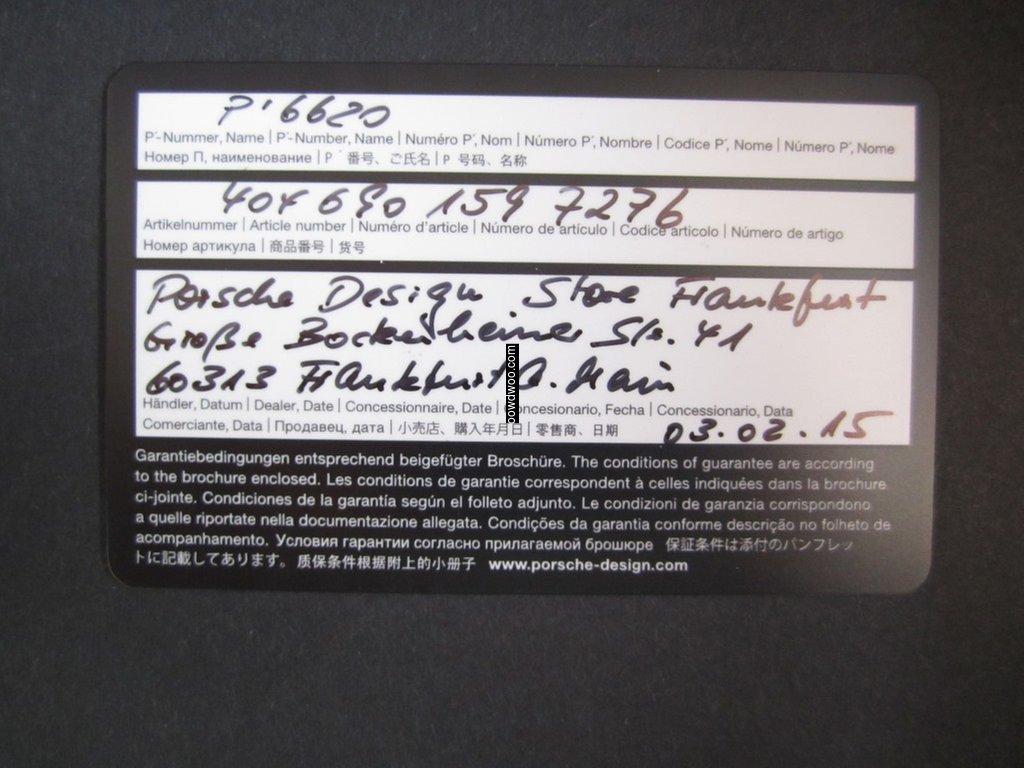 P'6620
P'-Nummer, Name | P'-Number, Name | Numéro P', Nom | Número P', Nombre | Codice P', Nome | Número P', Nome
Номер П, наименование | P' 番号、ご氏名 | P 号码、名称
404 690 159 7276
Artikelnummer | Article number | Numéro d'article | Número de artículo | Codice articolo | Número de artigo
Номер артикула | 商品番号 | 货号
Porsche Design Store Frankfurt
Große Bockenheimer Str. 41
60313 Frankfurt a. Main
Händler, Datum | Dealer, Date | Concessionnaire, Date | Concesionario, Fecha | Concessionario, Data
Comerciante, Data | Продавец, дата | 小売店、購入年月日 | 零售商、日期
03.02.15
powdwoo.com
Garantiebedingungen entsprechend beigefügter Broschüre. The conditions of guarantee are according
to the brochure enclosed. Les conditions de garantie correspondent à celles indiquées dans la brochure
ci-jointe. Condiciones de la garantía según el folleto adjunto. Le condizioni di garanzia corrispondono
a quelle riportate nella documentazione allegata. Condições da garantia conforme descrição no folheto de
acompanhamento. Условия гарантии согласно прилагаемой брошюре 保証条件は添付のパンフレッ
トに記載してあります。 质保条件根据附上的小册子 www.porsche-design.com